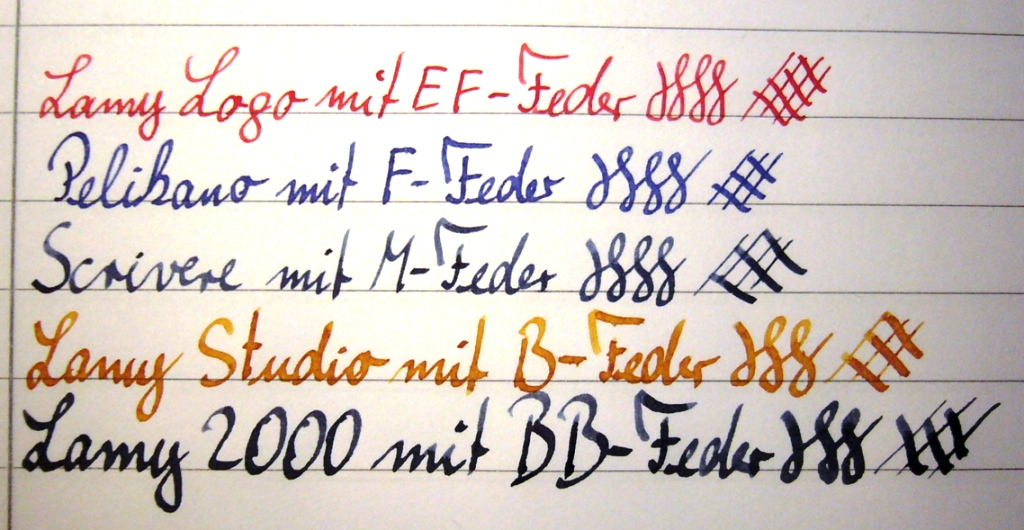 Lamy Logo mit EF-Feder
Pelikano mit F-Feder
Scrivere mit M-Feder
Lamy Studio mit B-Feder
Lamy 2000 mit BB-Feder